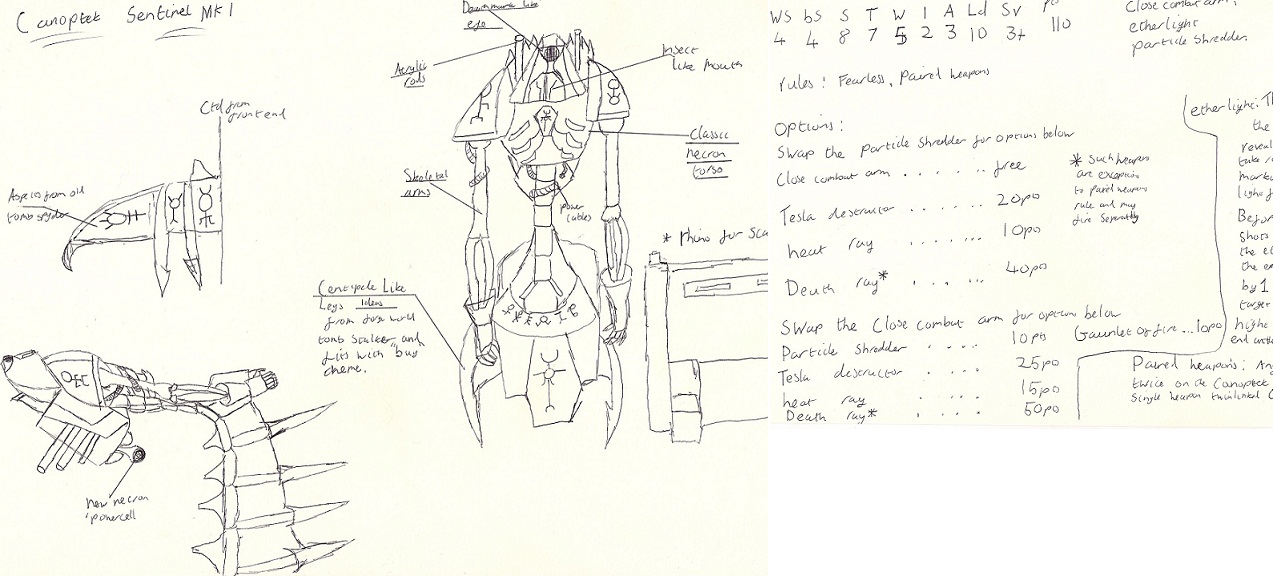 Canoptek Sentinel MK1
Deathmark like
eye
Acrylic
rods
Insect
like mouth
Ctd from
front end
Classic
necron
torso
Aspects from old
tomb spyder
Skeletal
arms
power
cables
* Rhino for sca
Centipede Like
Legs Ideas
from forge world
tomb stalker, and
fits with 'bug'
theme.
New necron
'powercell'
WS bS S T W I A Ld Sv
4 4 8 7 5 2 3 10 3+ 110
Close combat arm,
etherlight
particle shredder.
rules: Fearless, Paired weapons
Options:
Swap the particle shredder for options below
Close combat arm . . . . . . free
Tesla destructor . . . . . . 20po
heat ray . . . . . . . 10po
Death ray* . . . . 40po
* Such weapons
are exception
to paired weapons
rule and may
fire seperatly
Swap the Close combat arm for options below
Particle Shredder . . . . 10po
Gauntlet of fire ... 10po
Tesla destructor . . . . 25po
heat ray . . . . 15po
Death ray* . . . . 50po
etherlight: Th
the
reveal
take
light
Befor
Shots
the e
the en
by 1
target
highe
end
Paired weapons: Any
twice on the Canoptek
Single weapon twinlinked